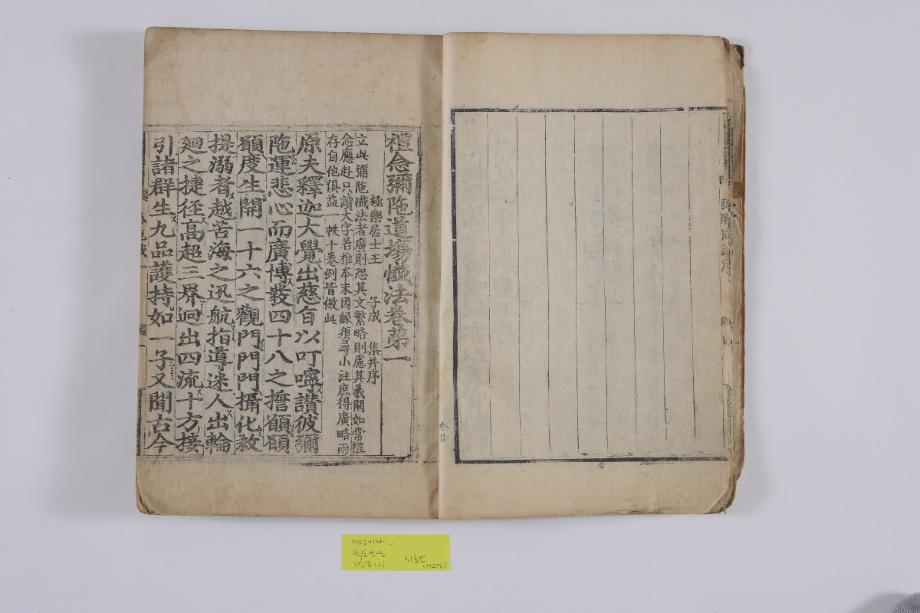 禮念彌陁道場懺法卷第一
極樂居士王 子成 集并序
立此彌陁懺法者廣則恐其文繁略則慮其義闕如常禮
念應赴只讀大字若推本末因緣須尋小注庶得廣略兩
存自他俱益一帙十卷例皆倣此
原夫釋迦大覺出慈旨以叮嚀讃彼彌
陁運悲心而廣博發四十八之擔願願
願度生開一十六之觀門門門攝化救
提溺者越苦海之迅航指導迷人出輪
廻之捷徑高超三界逈出四流十方接
引諸群生九品護持如一子又聞古今